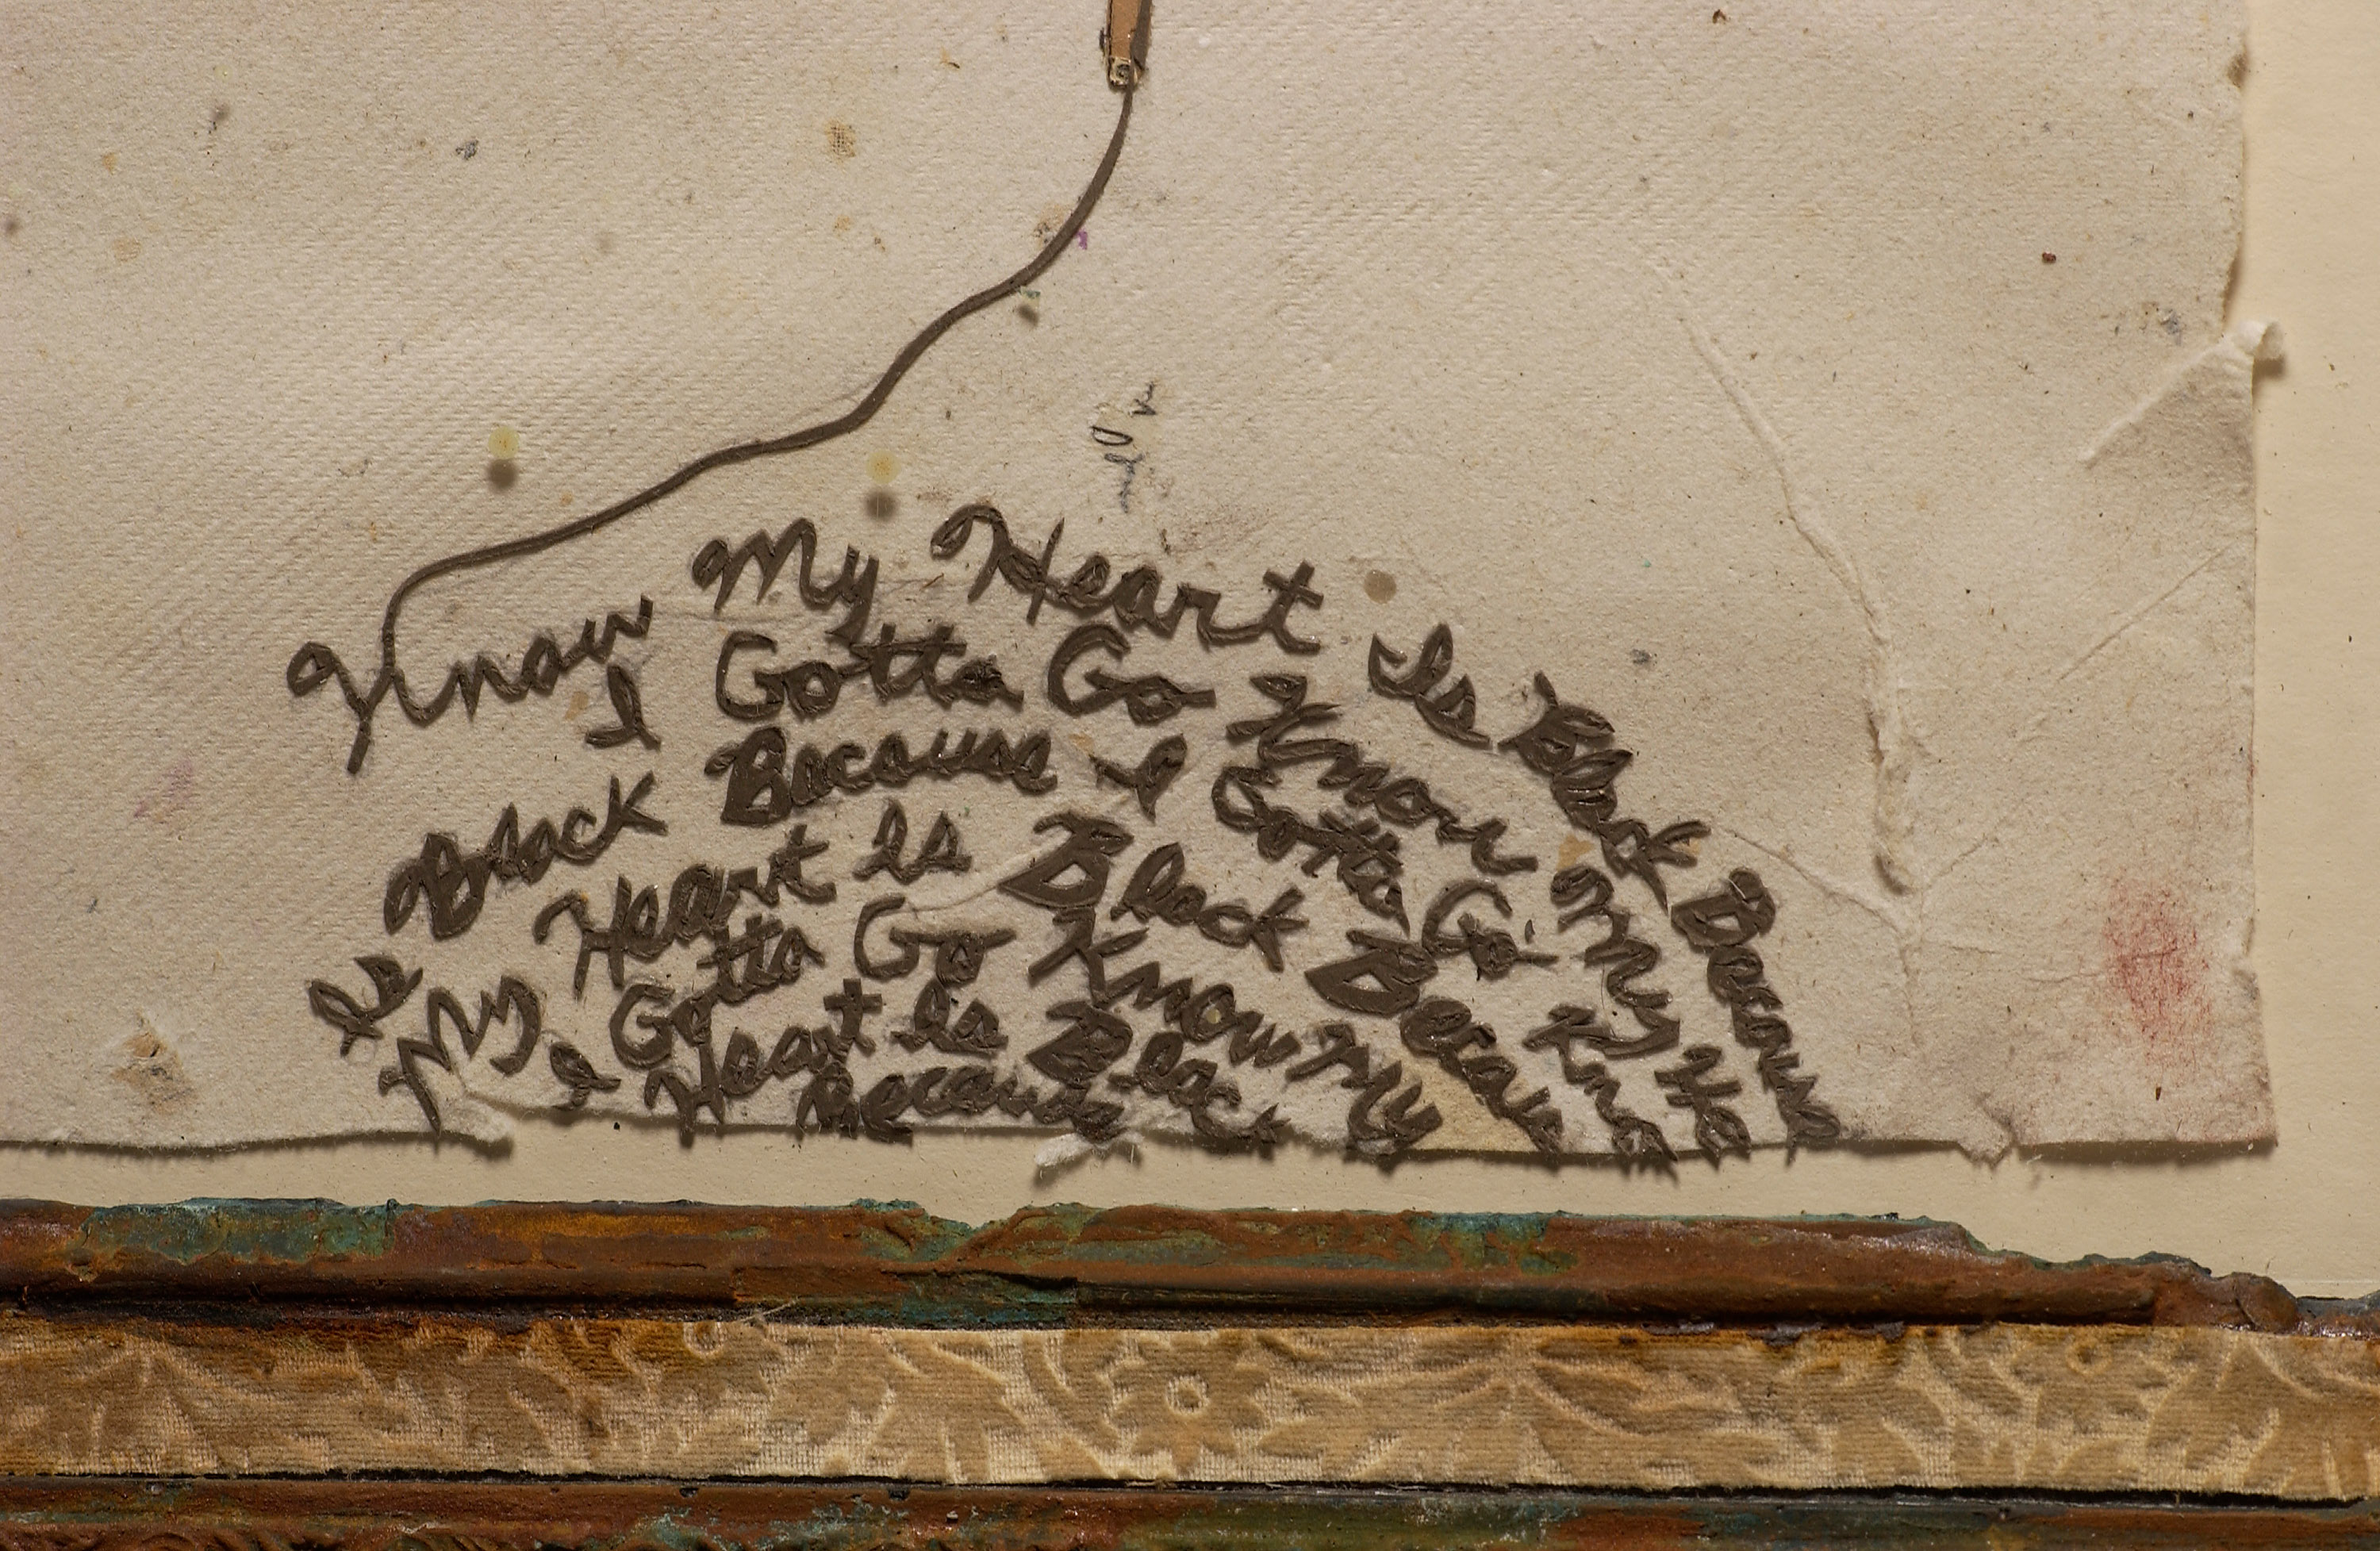 Know My Heart Is Black Because
I Gotta Go Know My He
Black Because I Gotta Go Kno
Is My Heart Is Black Because
I Gotta Go Know My
Heart Is Black
Because